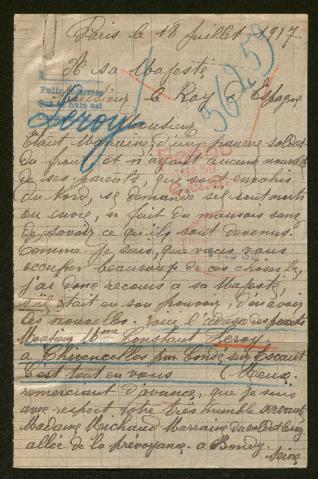 Paris le 18 Juillet 1917.
A sa Majesté
Monsieur le Roy d'Espagne
36259
Leroy
Monsieur
Etant Marraine d'un pauvre soldat
du front et n'ayant aucune nouvelle
de ses parents, qui sont envahis
du Nord, se demande s'il sont morts
ou encore, se fait du mauvais sang
de savoir ce qu'ils sont devenus.
Comme je sais, que vous vous
occuper beaucoup de ces choses la,
j'ai donc recours a sa Majesté,
s'il était en son pouvoir, d'en avoir
ces nouvelles. voici l'adresse des parents
Monsieur Mme Constant Leroy
a Thivencelles par Condé sur Escaut
C'est tout en vous
remerciant d'avance, que je suis
avec respect votre très humble servante
Madame Michaud Marraine du soldat Leroy
allée de la prévoyance. a Bondy
Seine